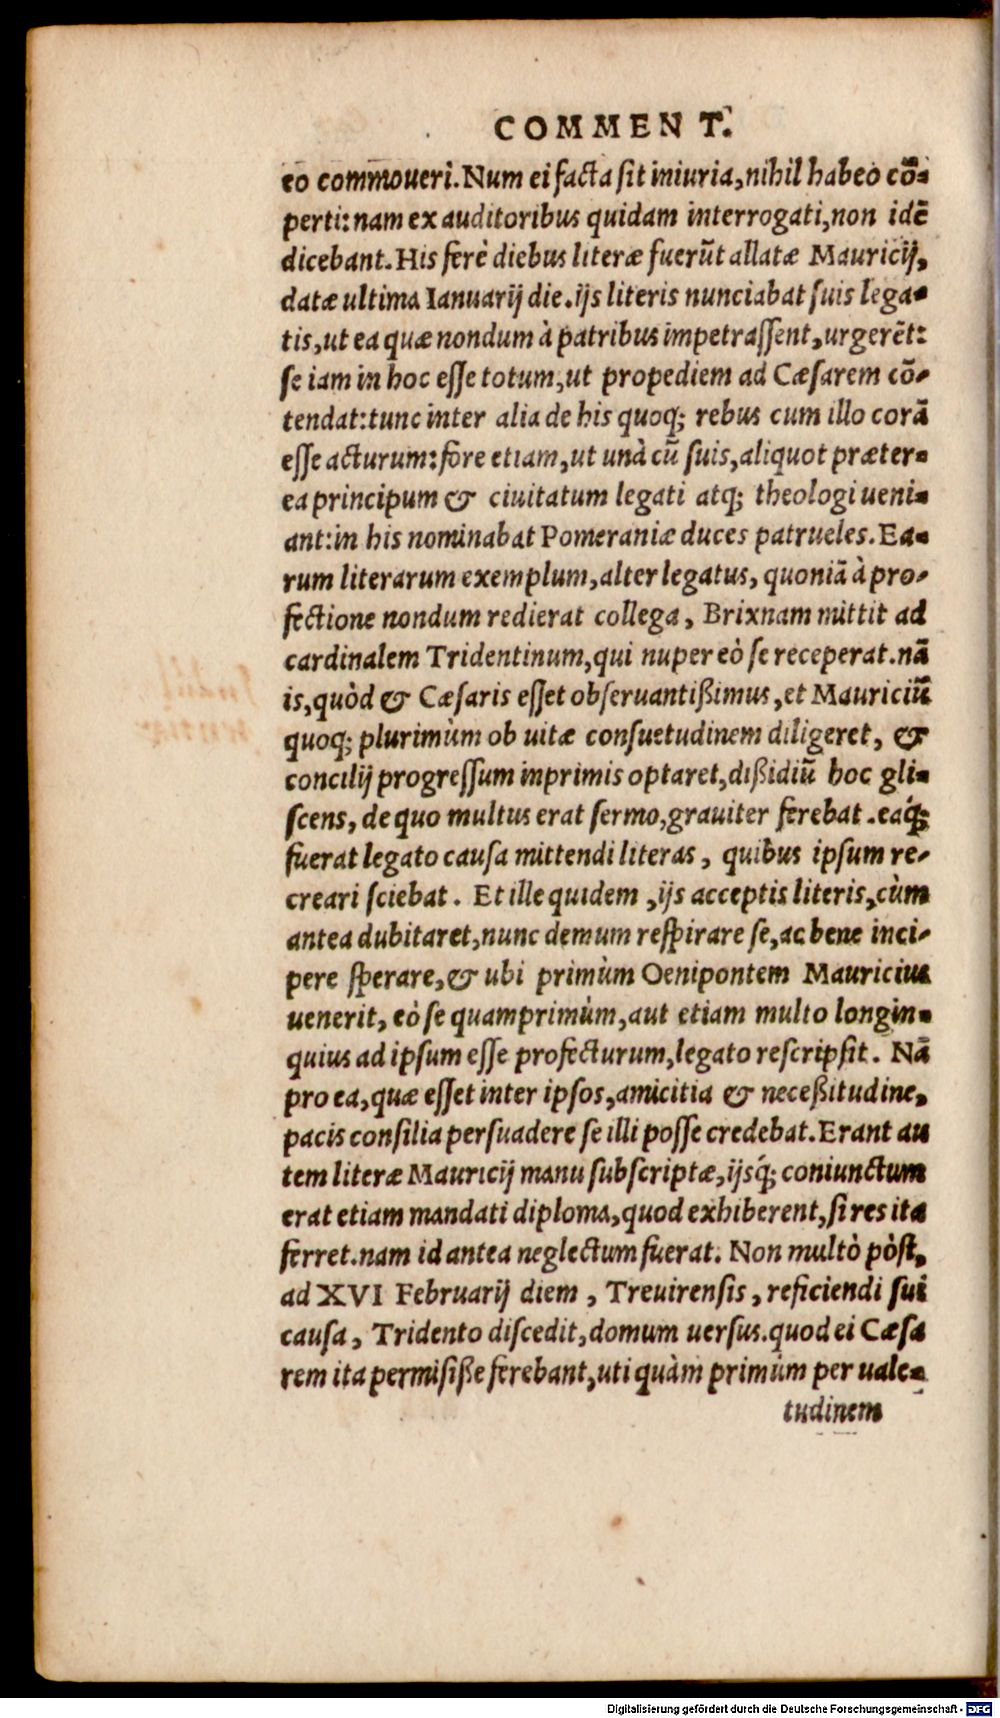 COMMENT.
eo commoueri. Num ei facta sit iniuria, nihil habeo cō-
perti: nam ex auditoribus quidam interrogati, non idē
dicebant. His ferè diebus literæ fuerūt allatæ Mauricij,
datæ ultima Ianuarij die. ijs literis nunciabat suis lega-
tis, ut ea quæ nondum à patribus impetrassent, urgerēt:
se iam in hoc esse totum, ut propediem ad Cæsarem cō-
tendat: tunc inter alia de his quoq; rebus cum illo corā
esse acturum: fore etiam, ut unà cū suis, aliquot præter-
ea principum & ciuitatum legati atq; theologi ueni-
ant: in his nominabat Pomeraniæ duces patrueles. Ea-
rum literarum exemplum, alter legatus, quoniā à pro-
fectione nondum redierat collega, Brixnam mittit ad
cardinalem Tridentinum, qui nuper eò se receperat. nā
is, quòd & Cæsaris esset obseruantißimus, et Mauriciū
quoq; plurimùm ob uitæ consuetudinem diligeret, &
concilij progressum inprimis optaret, dißidiū hoc gli-
scens, de quo multus erat sermo, grauiter ferebat. eaq́;
fuerat legato causa mittendi literas, quibus ipsum re-
creari sciebat. Et ille quidem, ijs acceptis literis, cùm
antea dubitaret, nunc demum respirare se, ac bene inci-
pere sperare, & ubi primùm Oenipontem Mauricius
uenerit, eò se quamprimùm, aut etiam multo longin-
quius ad ipsum esse profecturum, legato rescripsit. Nā
pro ea, quæ esset inter ipsos, amicitia & neceßitudine,
pacis consilia persuadere se illi posse credebat. Erant au
tem literæ Mauricij manu subscriptæ, ijsq́; coniunctum
erat etiam mandati diploma, quod exhiberent, si res ita
ferret. nam id antea neglectum fuerat. Non multò pòst,
ad XVI Februarij diem, Treuirensis, reficiendi sui
causa, Tridento discedit, domum uersus. quod ei Cæsa
rem ita permisiße ferebant, uti quàm primùm per uale-
tudinem
Digitalisierung gefördert durch die Deutsche Forschungsgemeinschaft - DFG